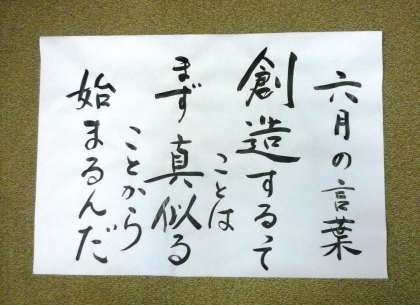 六月の言葉
創造するって
ことは
まず真似る
ことから
始まるんだ